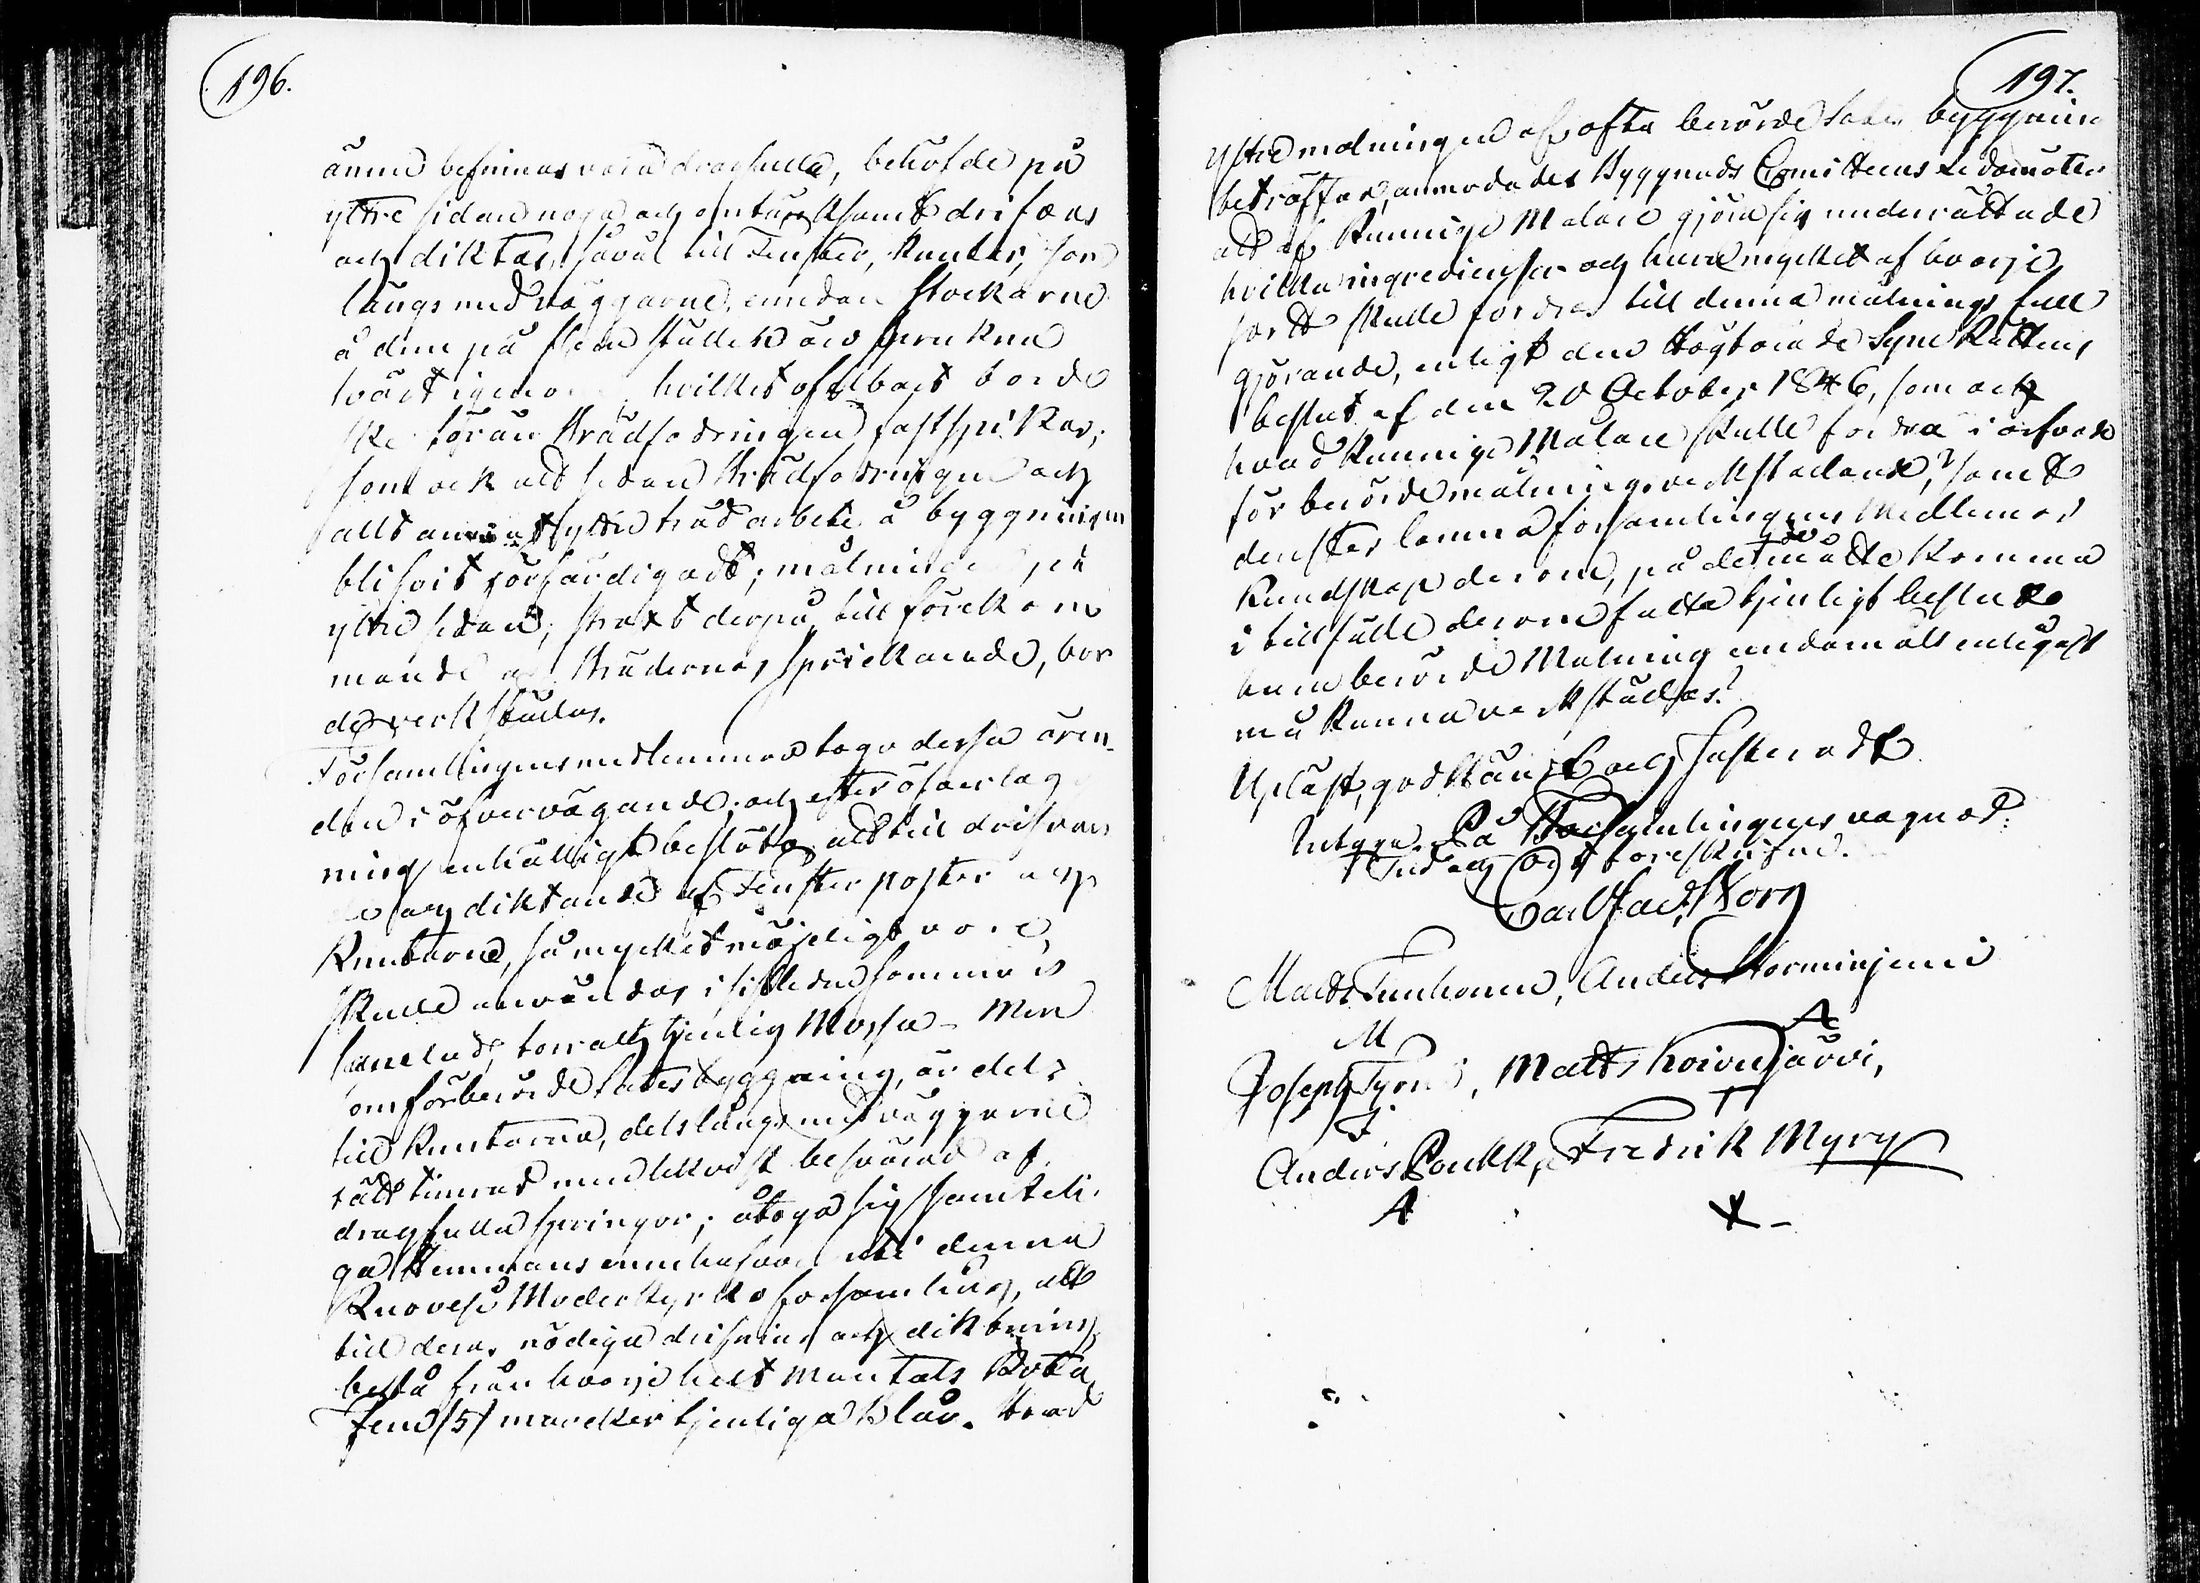 196.
ännu befinnas vara dragfulla, behöfde på
yttre sidan noga och omtänksamt drifvas
och diktas, såväl till Fenster, knutar, som
längs med väggarne, emedan stockarne
å den på sken ställen äro spruckna
tvärt igenom, hvilket ofelbart borde
ske förän Brädfodringen fastspikas;
som ock att sedan Brädfodringen och
allt annat yttre träd arbete å byggningen
blifvit förfärdigadt, målningen på
yttre sidan, straxt derpå, till förekom
mande af Brädernas sprickande, bor
de verkställas.
Församlingens medlemmar togo dessa ären-
den i öfvervägande; och efter öfverlägg
ning enhälligt beslöto att till drifvan
de och diktande af Fenster poster och
knutarne, så mycket möjeligt vore,
skulle användas i sistledne sommar
samlad, torr och tjenlig Mossa - Men
som förberörde sates byggning, är dels
till knutarna, dels längs med väggarne
tätt timrad men likväl besvärad af
dragfulla springor; åtogo sig samteli-
ga Hemmans innehafvare uti denna
Ruovesi Moderkyrko församling, att
till dera nödiga drifning och diktning
bestå från hvarje helt mantals Rota,
Fem /5/ marcker tjenliga Blår. Hvad
197.
yttre målningen af ofta berörde sates byggning
beträffar, anmodades Byggnads Comitteens Ledamöter
att af kunnige Målare gjöra sig underrättade
hvilka ingredienser och huru mycket af hvarje
sort skulle fordras till denna målnings full
gjörande, enligt den Högtärade Syne Rättens
beslut af den 20 October 1846, som ock
hvad kunnige Målare skulle fordra i arfvode
för berörde målnings verkställande, samt
derefter lemna församlingens Medlemmar
kundskap derom, på det de måtte komma
i tillfälle derom fatta tjenligt beslut
huru berörde Målning ändamålsenligast
må kunna verkställas.
Upläst, godkändt och justeradt
Intyga. På Församlingens vagnad:
Tid och Ort föreskrifne.
Carl Jac. Korn
Matts Tunhonen, Anders Storminjemi
M A
Joseph Tyrni, Matts Koivujärvi,
J T
Anders Poukka, Fredrik Myry
A X -